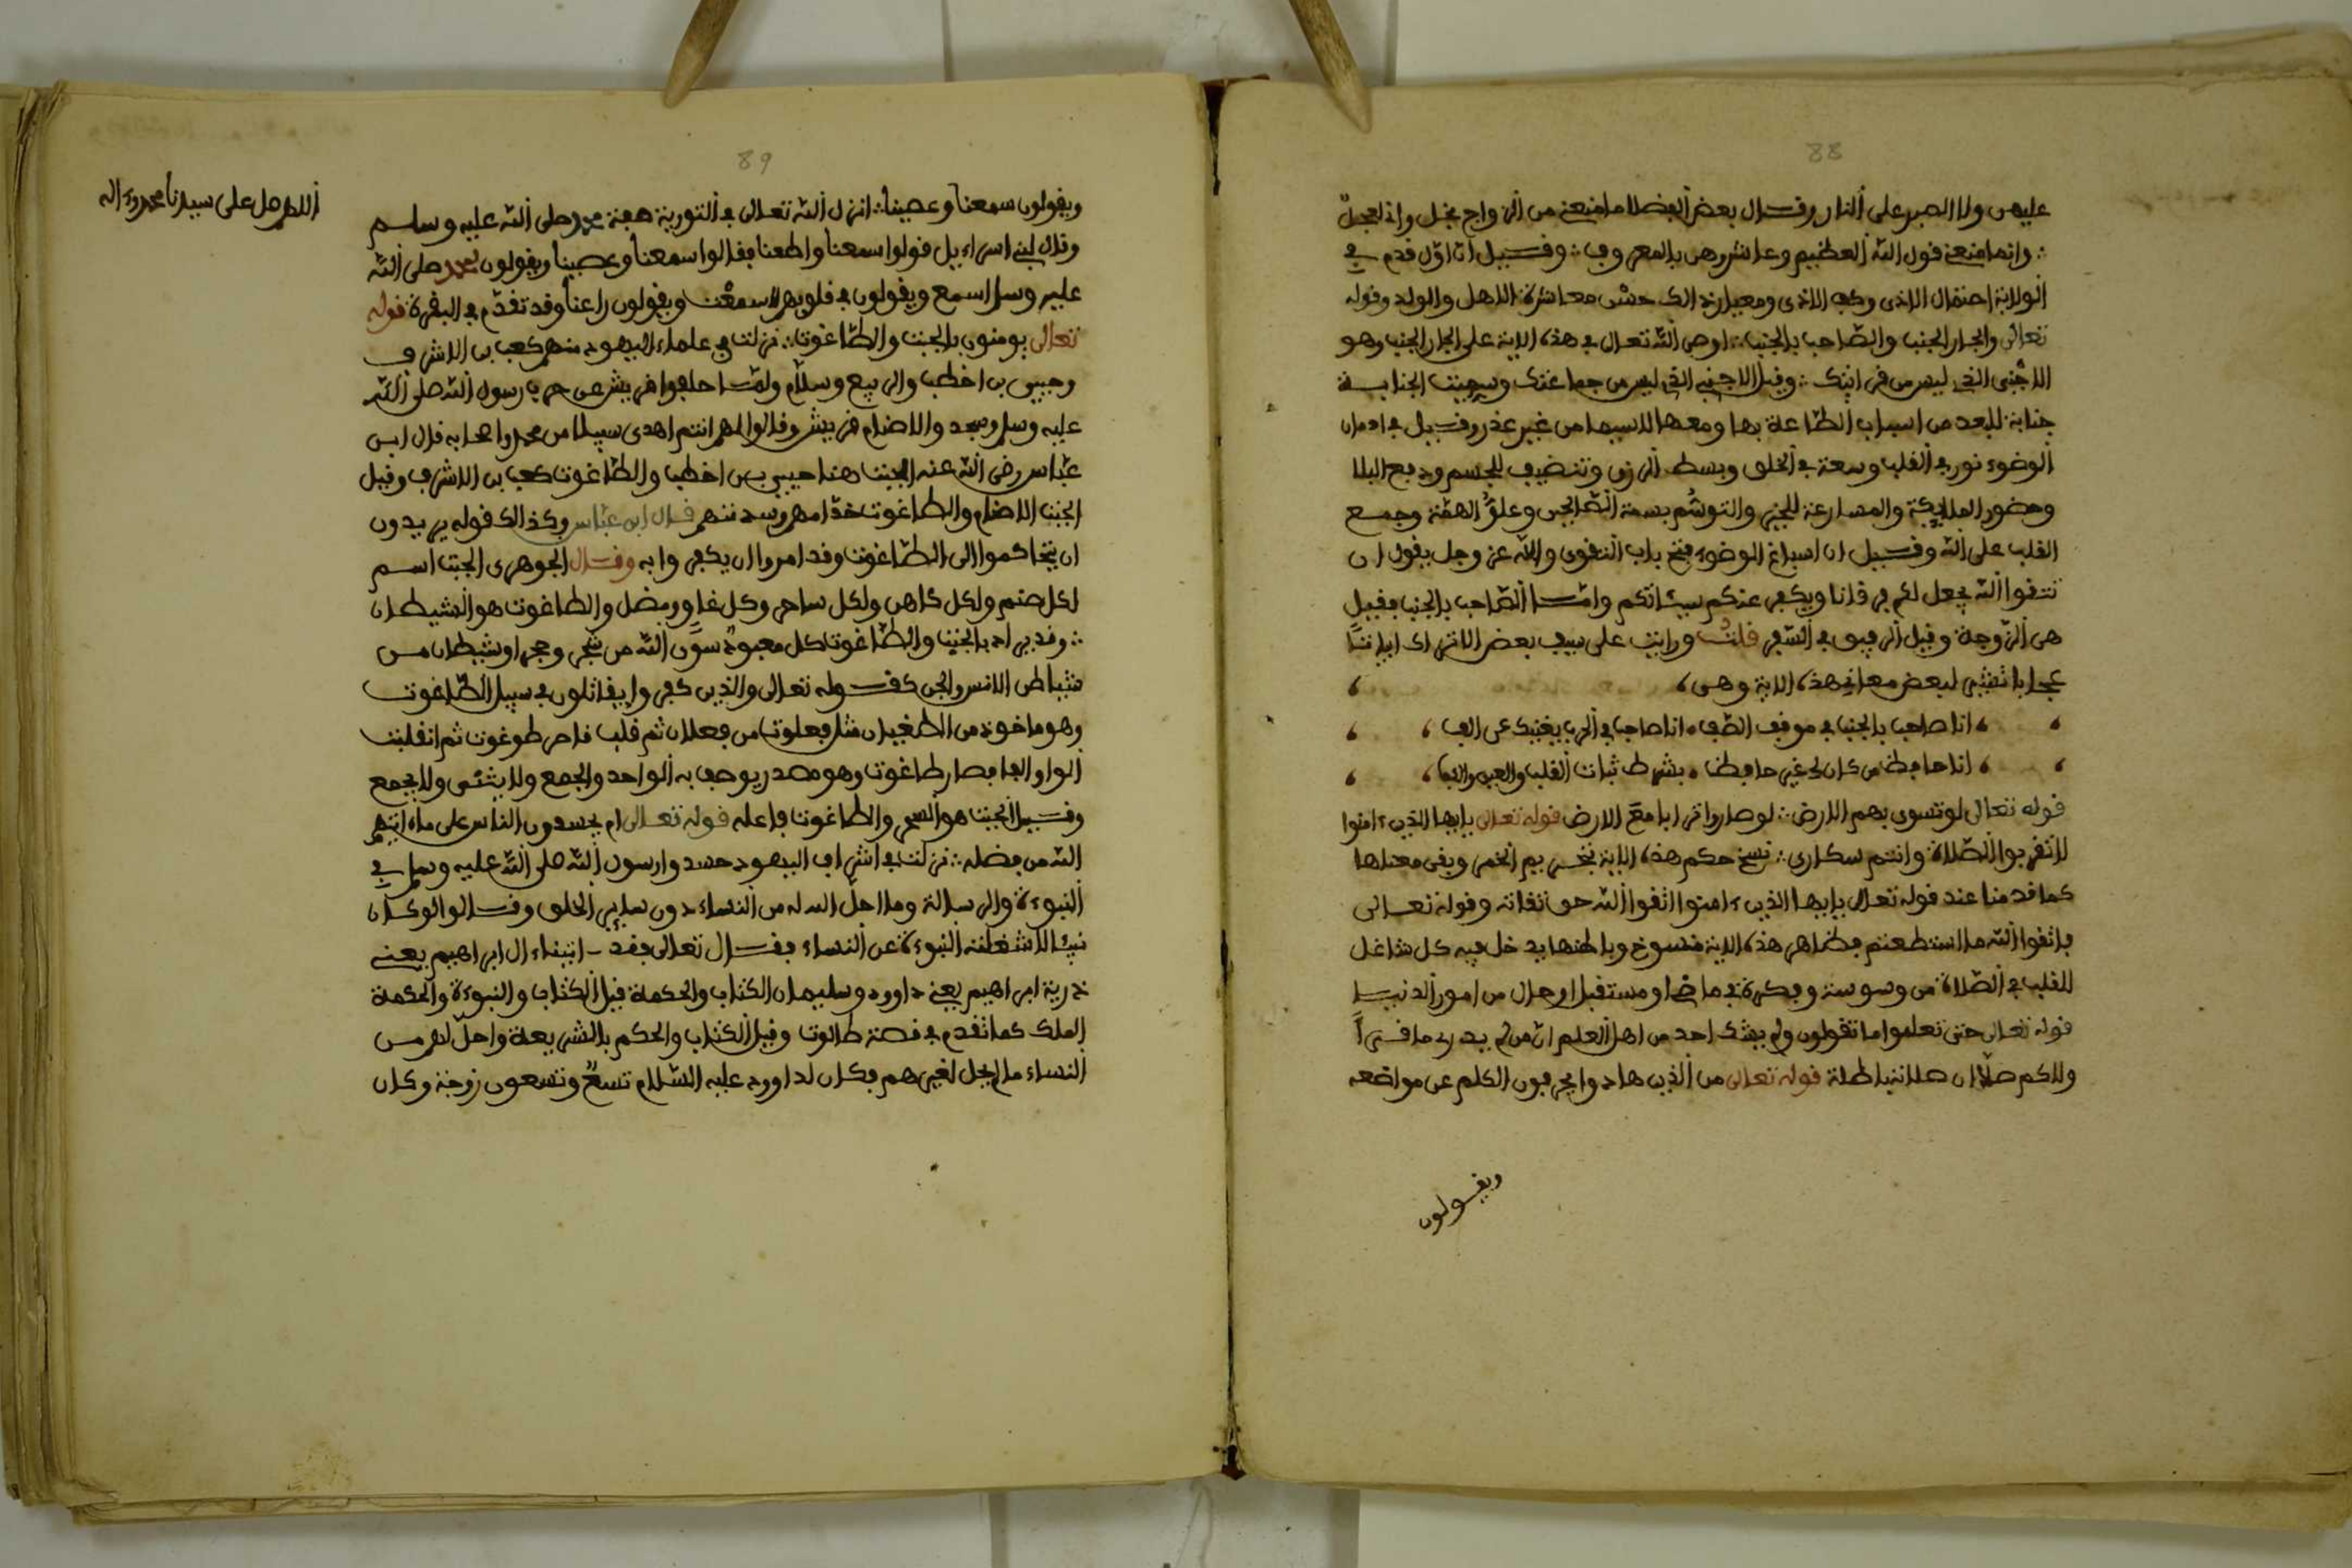 88
عليهن ولا الصبر على النار وقال بعض الفضلا ما منعني من الزواج بخل ولا عجل
وانما منعني قول الله العظيم وعاشروهن بالمعروف وقيل ان اول قدم في
الولاية احتمال الاذى وكف الاذى ومعيار ذالك حسن معاشرة الاهل والولد وقوله
تعالى والجار الجنب والصاحب بالجنب اوصى الله تعالى في هذه الاية على الجار الجنب وهو
الاجنبي الذي ليس من قرابتك وقيل الاجنبي الذي ليس من جماعتك وسميت الجنابة
جنابة للبعد من اسباب الطاعة بها ومعها لاسيما من غير عذر وقيل في ادمان
الوضوء نور في القلب وسعة في الخلق وبسط الرزق وتنضيف للجسم ودفع البلا
وحضور الملايكة والمسارعة للخير والتوسم بسمة الصالحين وعلو الهمة وجمع
القلب على الله وقيل ان اسباغ الوضوء فتح باب التقوى والله عز وجل يقول ان
تتقوا الله يجعل لكم فرقانا ويكفر عنكم سيئاتكم واما الصاحب بالجنب فقيل
هي الزوجة وقيل الرفيق في السفر قلت ورايت على سيف بعض الاتراك ابياتا
عجابا تشير لبعض معاني هذه الاية وهي
انا صاحب بالجنب في موقف الصف انا صاحب في الحرب يغنيك عن الف
انا حافظ من كان لي غير حافظ بشرط ثبات القلب والعين والكف
قوله تعالى لو تسوى بهم الارض لو صاروا ترابا مع الارض قوله تعالى يايها الذين ءامنوا
لا تقربوا الصلاة وانتم سكارى نسخ حكم هذه الاية تحريم الخمر وبقى معناها
كما قدمنا عند قوله تعالى يايها الذين ءامنوا اتقوا الله حق تقاته وقوله تعالى
فاتقوا الله ما استطعتم فظاهر هذه الاية منسوخ وباطنها يدخل فيه كل شاغل
للقلب في الصلاة من وسوسة وفكرة في ماض او مستقبل او حال من امور الدنيا
قوله تعالى حتى تعلموا ما تقولون ولم يشك احد من اهل العلم ان من لم يدر ما قرا
ولا كم صلا ان صلاته باطلة قوله تعالى من الذين هادوا يحرفون الكلم عن مواضعه
ويقولون
89
ويقولون سمعنا وعصينا انزل الله تعالى في التورية صفة محمد صلى الله عليه وسلم
وقال لبني اسراءيل قولوا سمعنا واطعنا فقالوا سمعنا وعصينا ويقولون لمحمد صلى الله
عليه وسلم اسمع ويقولون في قلوبهم لا سمعت ويقولون راعنا وقد تقدم في البقرة قوله
تعالى يومنون بالجبت والطاغوت نزلت في علماء اليهود منهم كعب بن الاشرف
وحيي بن اخطب والربيع وسلام ولما حالفوا قريش على حرب رسول الله صلى الله
عليه وسلم وسجدوا للاصنام قريش وقالوا لهم انتم اهدى سبيلا من محمد واصحابه قال ابن
عباس رضى الله عنه الجبت هنا حيي بن اخطب والطاغوت كعب بن الاشرف وقيل
الجبت الاصنام والطاغوت خدامهم وسدنتهم قال ابن عباس وكذالك قوله يريدون
ان يتحاكموا الى الطاغوت وقد امروا ان يكفروا به وقال الجوهرى الجبت اسم
لكل صنم ولكل كاهن ولكل ساحر وكل غاو ومضل والطاغوت هو الشيطان
وقد يراد بالجبت والطاغوت كل معبود سوى الله من شجر وحجر او شيطان من
شياطن الانس والجن كقوله تعالى والذين كفروا يقاتلون في سبيل الطاغوت
وهو ماخوذ من الطغيان مثل فعلوت من فعلان ثم قلب فاخر طوغوت ثم انقلبت
الواو الفا فصار طاغوت وهو مصدر يوصف به الواحد والجمع ولا يثنى ولا يجمع
وقيل الجبت هو السحر والطاغوت فاعله قوله تعالى ام يحسدون الناس على ما ءاتيهم
الله من فضله نزلت في اشراف اليهود حسدوا رسول الله صلى الله عليه وسلم في
النبوءة والرسالة وما احل الله له من النساء دون ساير الخلق وقالوا لو كان
نبيا لاشغلته النبوءة عن النساء فقال تعالى فقد اتيناء ال ابراهيم يعني
ذرية ابراهيم يعني داوود وسليمان الكتاب والحكمة قيل الكتاب والنبوءة والحكمة
الملك كما تقدم في قصة طالوت وقيل الكتاب والحكم بالشريعة واحل لهم من
النساء ما لم يحل لغيرهم فكان لداوود عليه السلام تسع وتسعون زوجة وكان
اللهم صل على سيدنا محمد وءاله